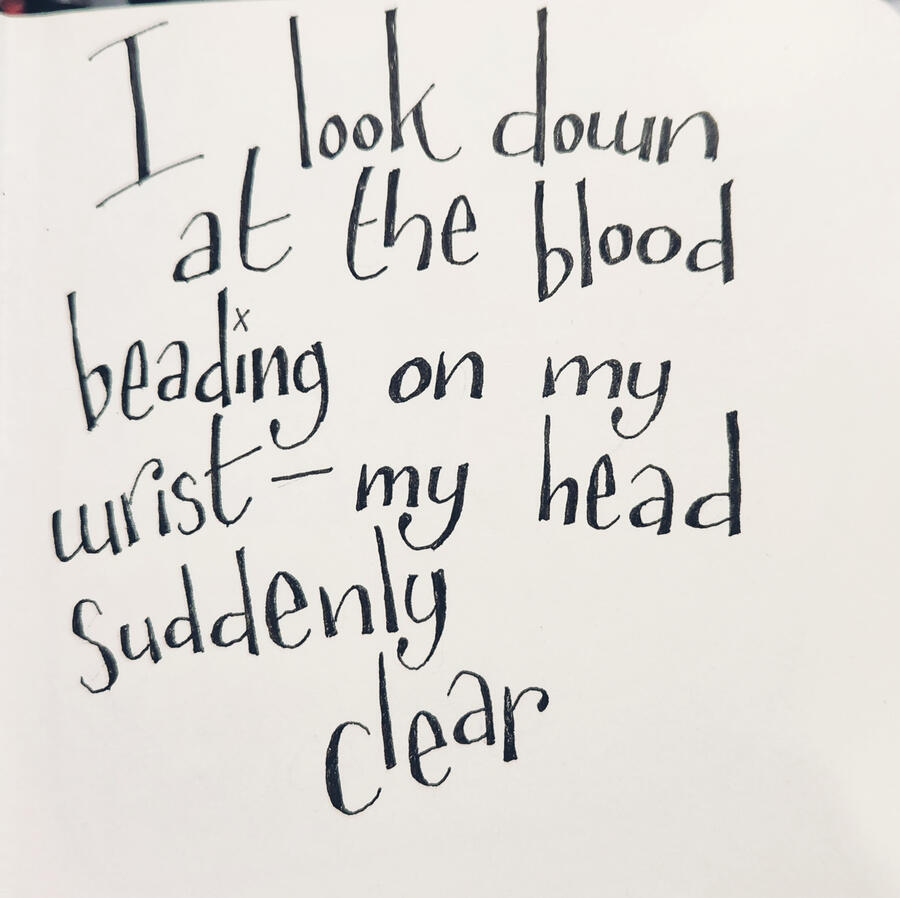 I look down
at the blood
beading on my
wrist — my head
suddenly
clear